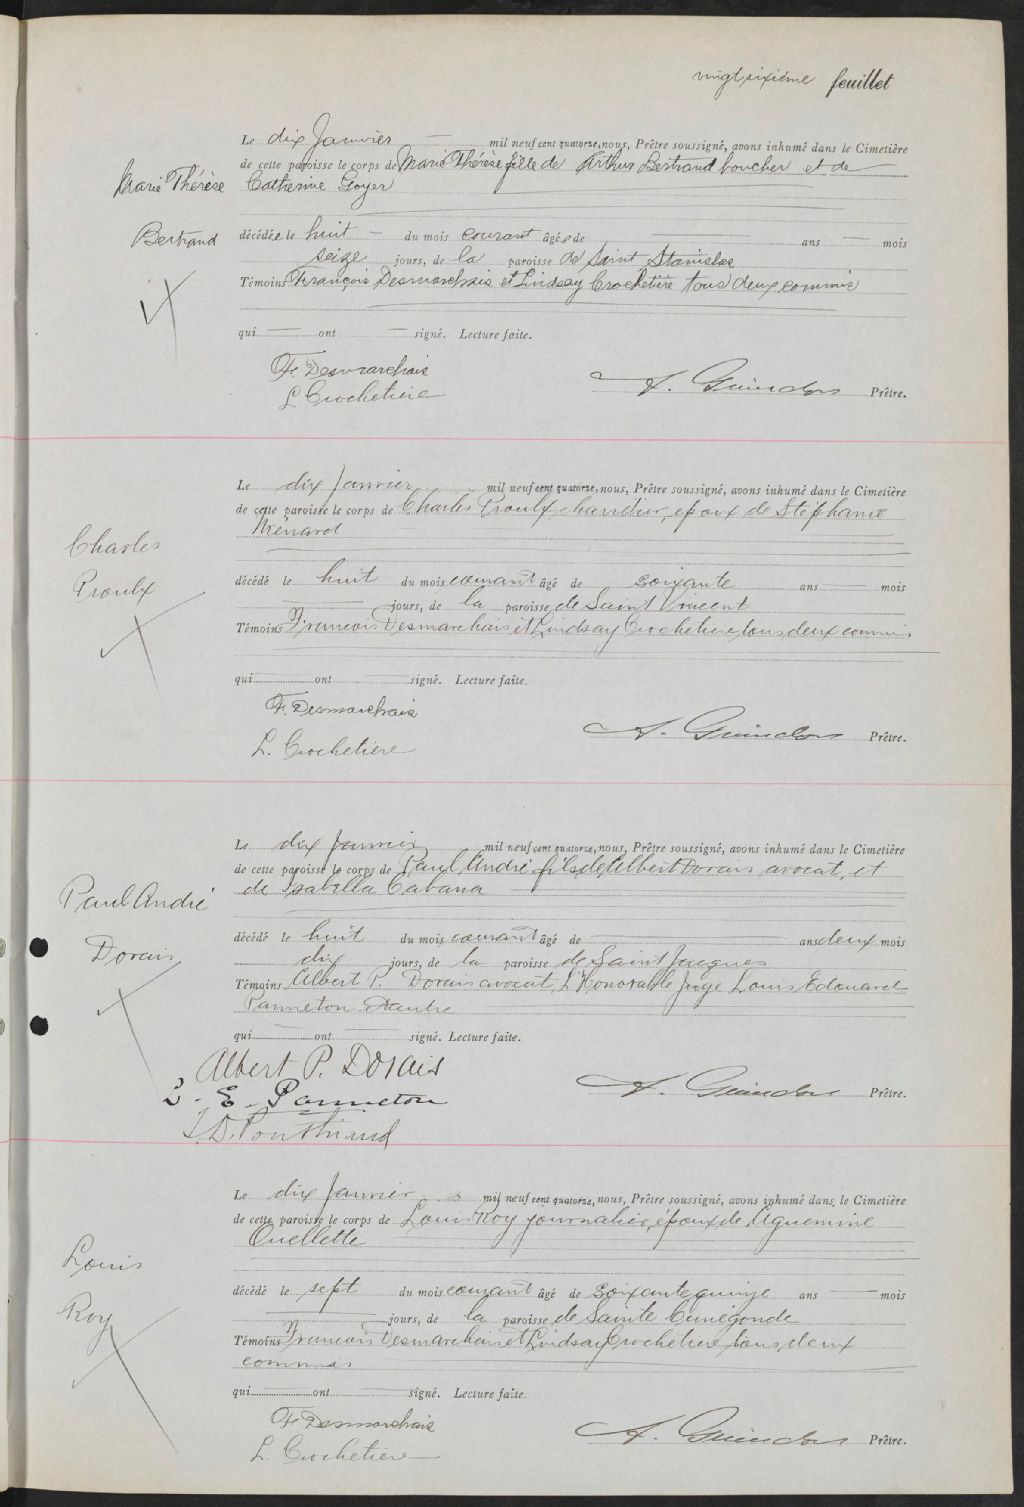 vingtsixième feuillet
Le dix Janvier mil neuf cent quatorze, nous, Prêtre soussigné, avons inhumé dans le Cimetière
de cette paroisse le corps de Marie Thérèse fille de Arthur Bertrand boucher et de
Marie Thérèse Catherine Goyer
Bertrand décédée le huit du mois courant âgée de ans mois
seize jours, de la paroisse de Saint Stanislas
Témoins François Desmarchais et Lindsay Crochetière tous deux commis
qui ont signé. Lecture faite.
F. Desmarchais
L Crochetière A. Guindon Prêtre.
Le dix Janvier mil neuf cent quatorze, nous, Prêtre soussigné, avons inhumé dans le Cimetière
de cette paroisse le corps de Charles Proulx, charretier, époux de Stéphanie
Ménard
Charles
Proulx
décédé le huit du mois courant âgé de soixante ans mois
jours, de la paroisse de Saint Vincent
Témoins Francois Desmarchais et Lindsay Crochetiere tous deux commis
qui ont signé. Lecture faite.
F. Desmarchais
L. Crochetiere A. Guindon Prêtre.
Le dix Janvier mil neuf cent quatorze, nous, Prêtre soussigné, avons inhumé dans le Cimetière
de cette paroisse le corps de Paul André fils de Albert Dorais avocat, et
de Isabella Cabana
Paul André
Dorais
décédé le huit du mois courant âgé de ans deux mois
dix jours, de la paroisse de Saint Jacques
Témoins Albert P. Dorais avocat, L'Honorable Juge Louis Edouard
Panneton &autre
qui ont signé. Lecture faite.
Albert P. Dorais
L. E. Panneton A. Guindon Prêtre.
Le dix Janvier mil neuf cent quatorze, nous, Prêtre soussigné, avons inhumé dans le Cimetière
de cette paroisse le corps de Louis Roy journalier, époux de
Ouellette
Louis
Roy
décédé le sept du mois courant âgé de soixante quinze ans mois
jours, de la paroisse de Sainte Cunégonde
Témoins Francois Desmarchais et Lindsay Crochetiere tous deux
commis
qui ont signé. Lecture faite.
F. Desmarchais
L. Crochetiere A. Guindon Prêtre.